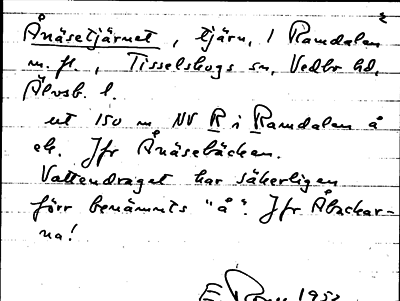 Ånäsetjärnet, tjärn, i Ramdalen
m. fl., Tisselskogs sn, Vedbo hd,
Älvsb. l.
ut 150 m NV R i Ramdalen å
ek. Jfr Ånäsebäcken.
Vattendraget har säkerligen
förr benämnts "å". Jfr Åbackar-
na!
E 1952